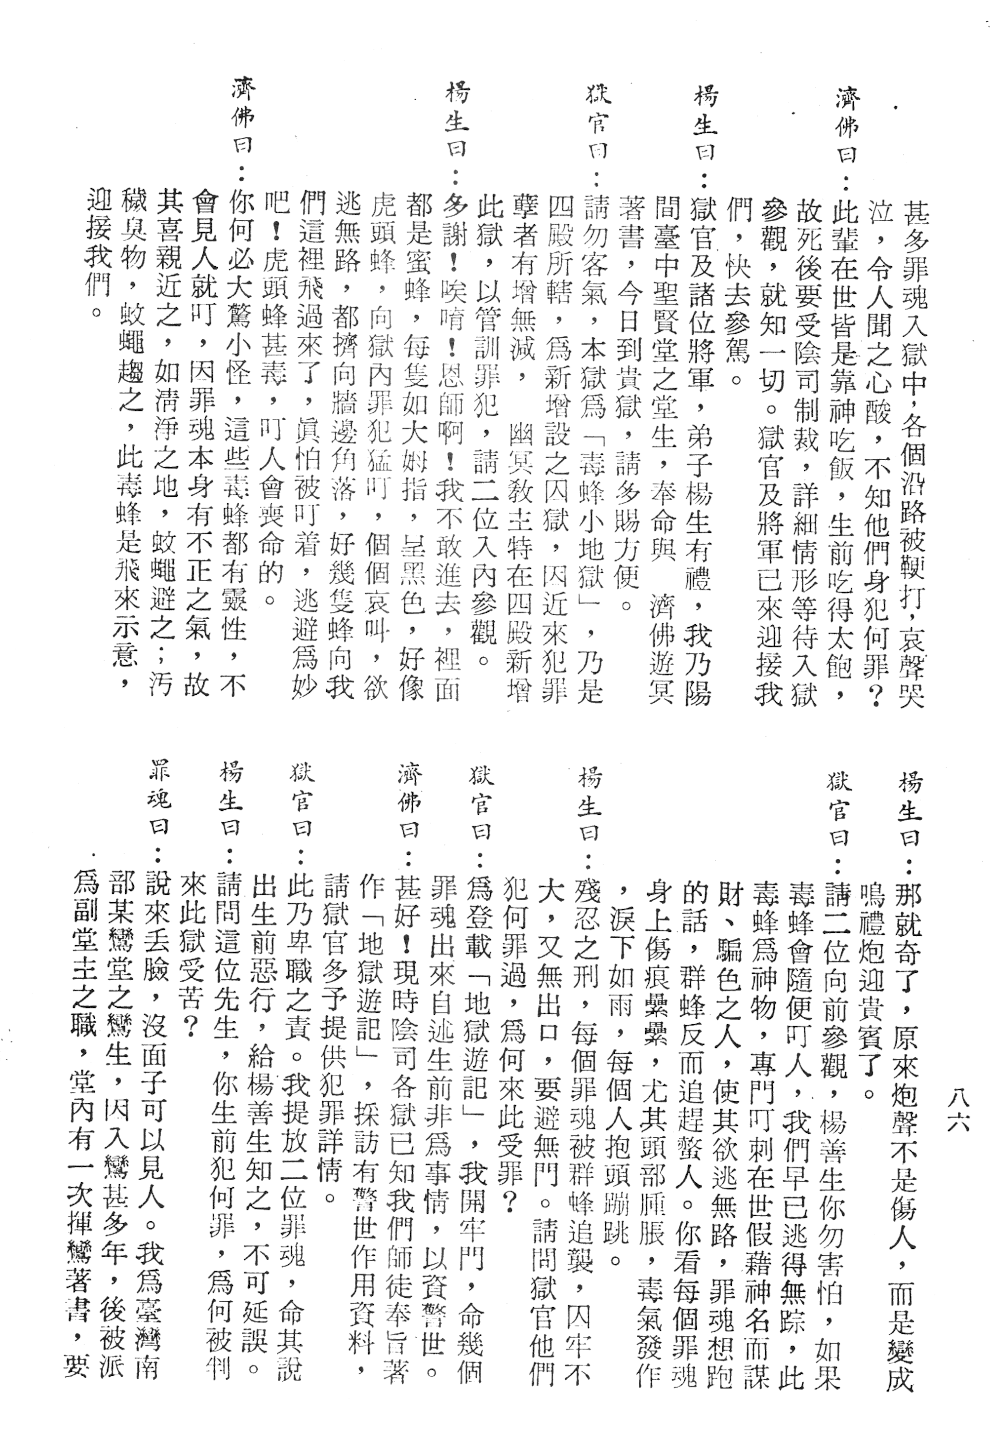 甚多罪魂入獄中，各個沿路被鞭打，哀聲哭
泣，令人聞之心酸，不知他們身犯何罪？
濟佛曰：此輩在世皆是靠神吃飯，生前吃得太飽，
故死後要受陰司制裁，詳細情形等待入獄
參觀，就知一切。獄官及將軍已來迎接我
們，快去參駕。
楊生曰：獄官及諸位將軍，弟子楊生有禮，我乃陽
間臺中聖賢堂之堂生，奉命與　濟佛遊冥
著書，今日到貴獄，請多賜方便。
獄官曰：請勿客氣，本獄爲「毒蜂小地獄」，乃是
四殿所轄，爲新增設之囚獄，因近來犯罪
孽者有增無減，　幽冥教主特在四殿新增
此獄，以管訓罪犯，請二位入內參觀。
楊生曰：多謝！唉唷！恩師啊！我不敢進去，裡面
都是蜜蜂，每隻如大姆指，呈黑色，好像
虎頭蜂，向獄內罪犯猛叮，個個哀叫，欲
逃無路，都擠向牆邊角落，好幾隻蜂向我
們這裡飛過來了，眞怕被叮着，逃避爲妙
吧！虎頭蜂甚毒，叮人會喪命的。
濟佛曰：你何必大驚小怪，這些毒蜂都有靈性，不
會見人就叮，因罪魂本身有不正之氣，故
其喜親近之，如淸淨之地，蚊蠅避之；汚
穢臭物，蚊蠅趨之，此毒蜂是飛來示意，
迎接我們。
八六
楊生曰：那就奇了，原來炮聲不是傷人，而是變成
鳴禮炮迎貴賓了。
獄官曰：請二位向前參觀，楊善生你勿害怕，如果
毒蜂會隨便叮人，我們早已逃得無踪，此
毒蜂爲神物，專門叮刺在世假藉神名而謀
財、騙色之人，使其欲逃無路，罪魂想跑
的話，群蜂反而追趕螫人。你看每個罪魂
身上傷痕纍纍，尤其頭部腫脹，毒氣發作
，淚下如雨，每個人抱頭蹦跳。
楊生曰：殘忍之刑，每個罪魂被群蜂追襲，囚牢不
大，又無出口，要避無門。請問獄官他們
犯何罪過，爲何來此受罪？
獄官曰：爲登載「地獄遊記」，我開牢門，命幾個
罪魂出來自述生前非爲事情，以資警世。
濟佛曰：甚好！現時陰司各獄已知我們師徒奉旨著
作「地獄遊記」，採訪有警世作用資料，
請獄官多予提供犯罪詳情。
獄官曰：此乃卑職之責。我提放二位罪魂，命其說
出生前惡行，給楊善生知之，不可延誤。
楊生曰：請問這位先生，你生前犯何罪，爲何被判
來此獄受苦？
罪魂曰：說來丢臉，沒面子可以見人。我爲臺灣南
部某鸞堂之鸞生，因入鸞甚多年，後被派
爲副堂主之職，堂內有一次揮鸞著書，要